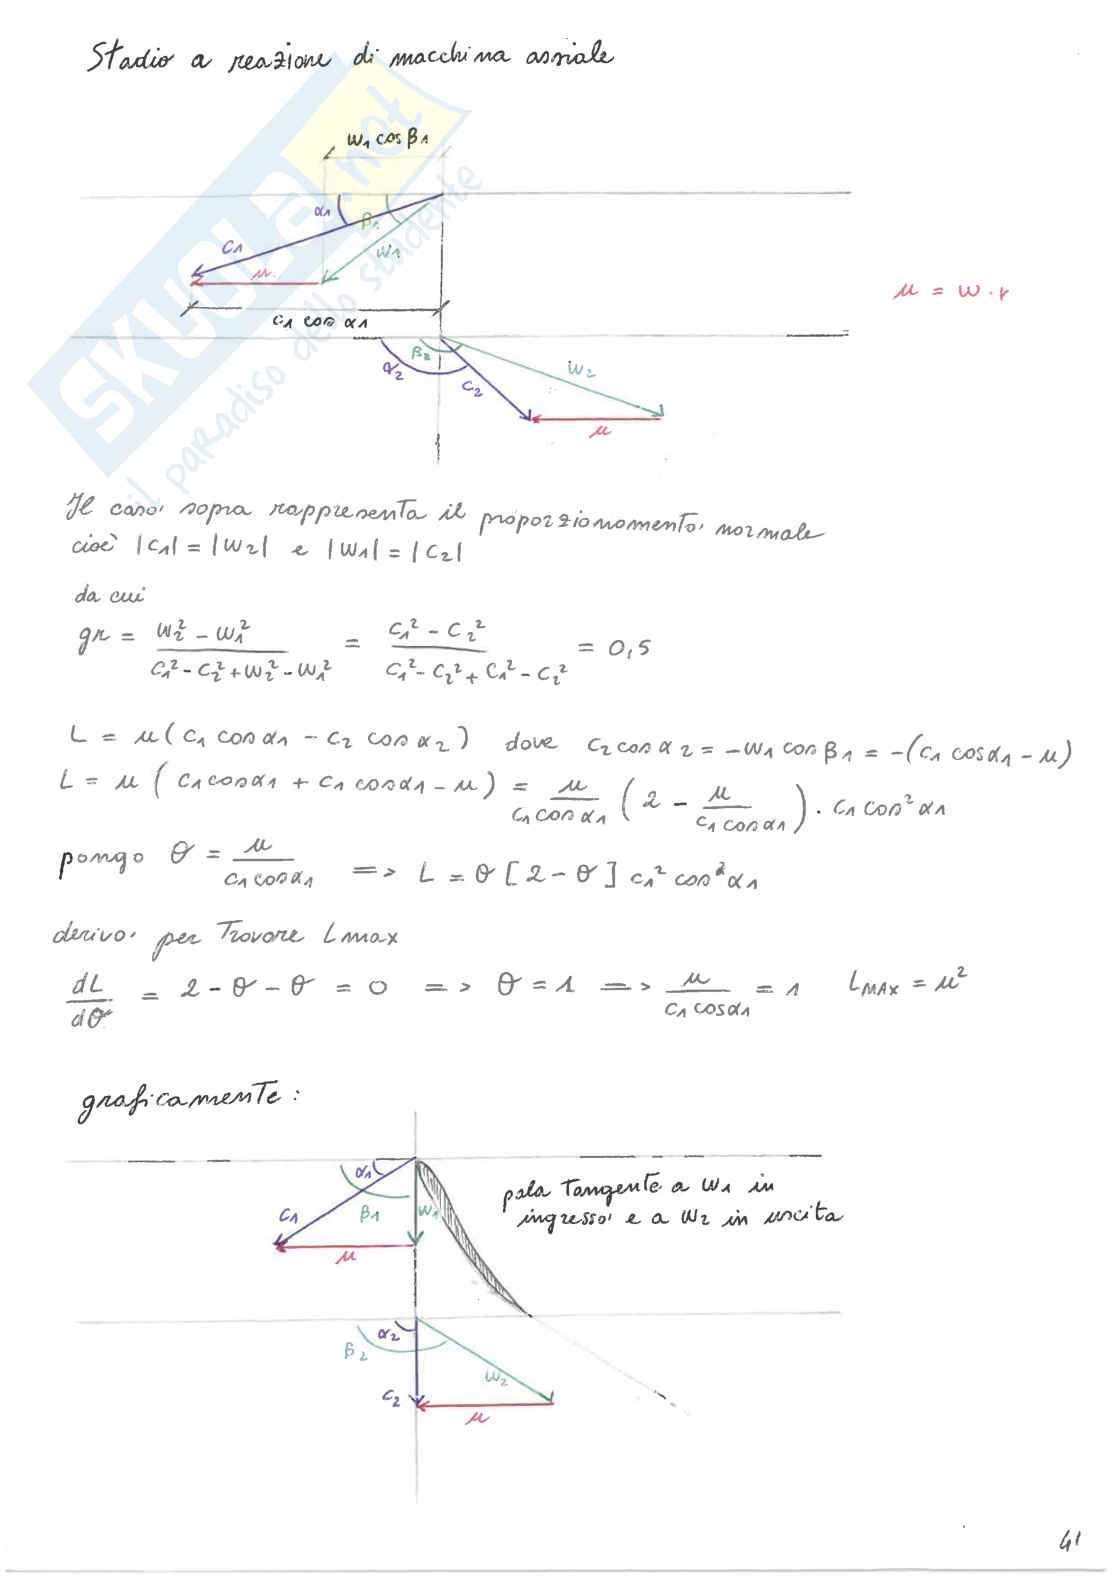 Stadio a reazione di macchina assiale
w1 cos β1
α1
β1
c1
w1
u
u = ω·r
c1 cos α1
β2
α2
c2
w2
u
SKUOLA.net
il paradiso dello studente
Il caso sopra rappresenta il proporzionamento normale
cioè |c1| = |w2| e |w1| = |c2|
da cui
gr = (w2² - w1²)/(c1² - c2² + w2² - w1²) = (c1² - c2²)/(c1² - c2² + c1² - c2²) = 0,5
L = u(c1 cos α1 - c2 cos α2) dove c2 cos α2 = -w1 cos β1 = -(c1 cos α1 - u)
L = u(c1 cos α1 + c1 cos α1 - u) = u/(c1 cos α1) (2 - u/(c1 cos α1)) · c1 cos² α1
pongo θ = u/(c1 cos α1) => L = θ[2 - θ] c1² cos² α1
derivo per trovare Lmax
dL/dθ = 2 - θ - θ = 0 => θ = 1 => u/(c1 cos α1) = 1 LMAX = u²
graficamente:
α1
c1
β1
w1
u
pala tangente a w1 in
ingresso e a w2 in uscita
α2
β2
c2
w2
u
41